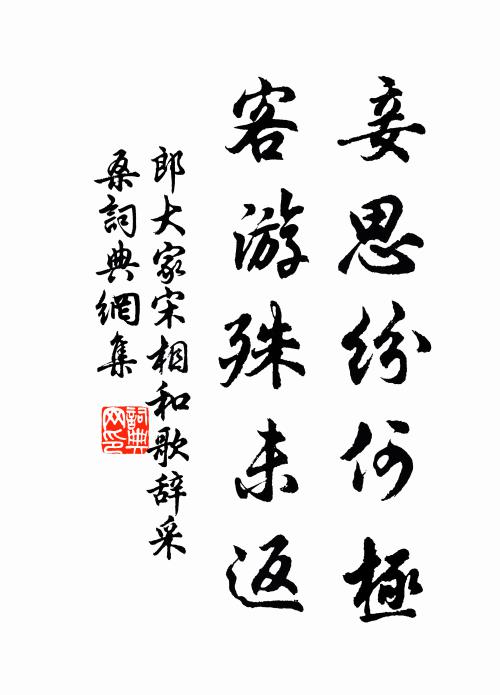 妾思纷何極
客游殊未返
郎大家宋相和歌辞采
桑詞典網集
詞典
网印